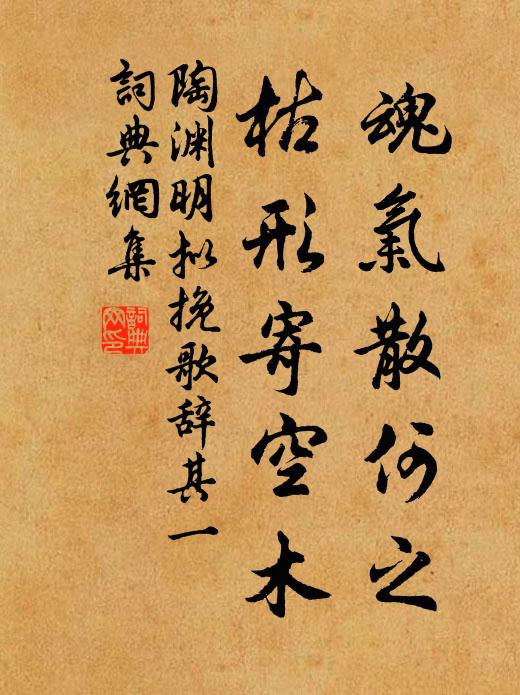 魂氣散何之
枯形寄空木
陶渊明拟挽歌辞其一
詞典網集
詞典网印